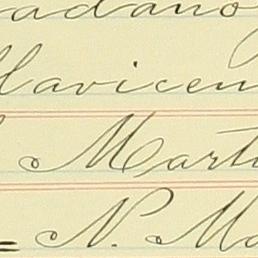 adano
lavicen
Mart
= N. Ma